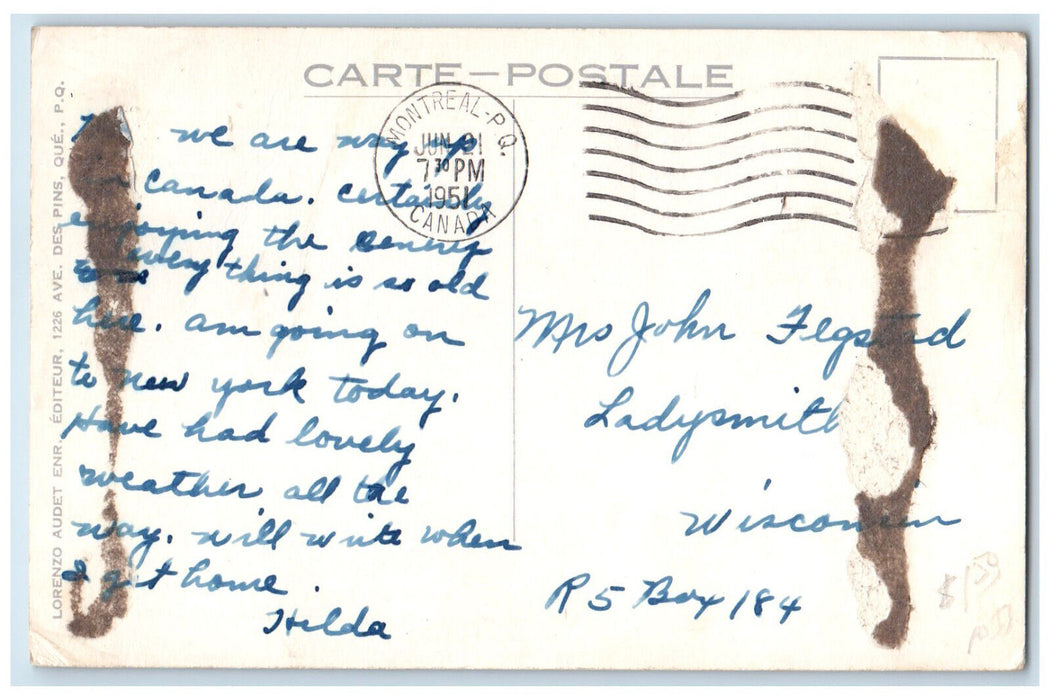 CARTE-POSTALE
MONTREAL-P.Q.
JUN 21
7 30 PM
1951
CANADA
we are way up
in Canada. Certainly
enjoying the cenery
to everything is so old
here. am going on
to new york today.
Have had lovely
weather all the
way. will write when
I get home.
Hilda
Mrs John Flegstad
Ladysmith
Wisconsin
R 5 Box 184
LORENZO AUDET ENR. ÉDITEUR, 1226 AVE. DES PINS, QUÉ., P.Q.